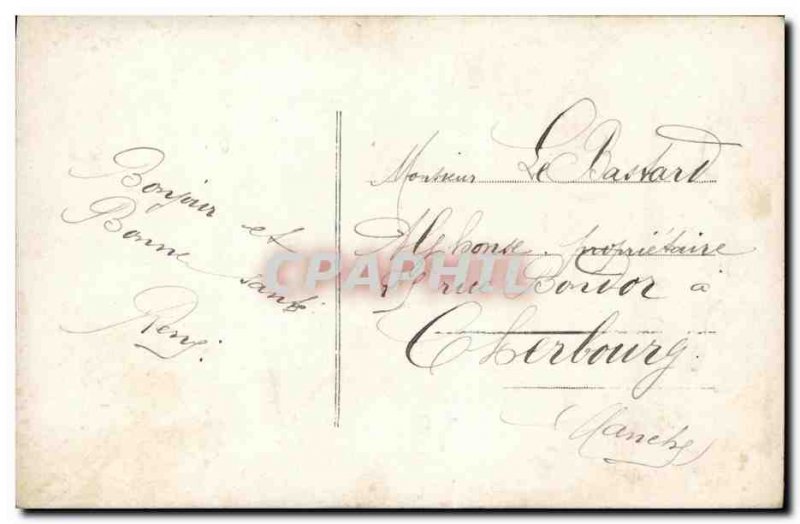 Bonjour et
Bonne santé
René.
Monsieur Le Bastard
Alphonse. propriétaire
rue Bondor à
Cherbourg.
Manche
CPAPHIL